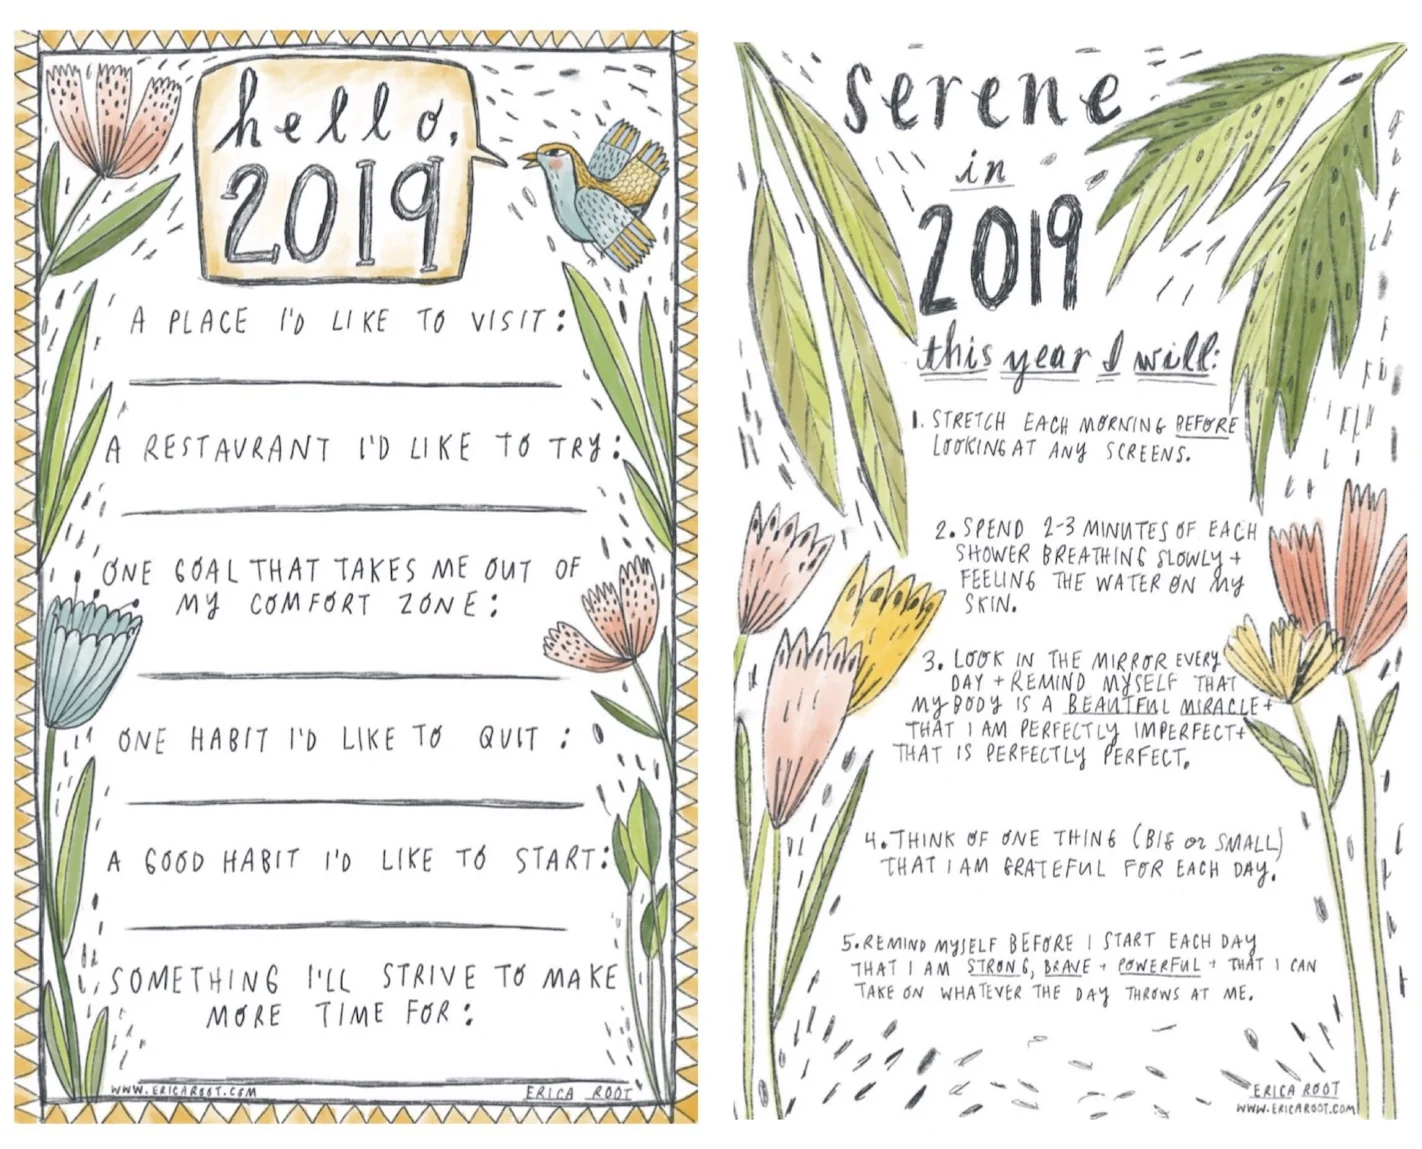 hello,
2019
A PLACE I'D LIKE TO VISIT:
A RESTAURANT I'D LIKE TO TRY:
ONE GOAL THAT TAKES ME OUT OF
MY COMFORT ZONE:
ONE HABIT I'D LIKE TO QUIT:
A GOOD HABIT I'D LIKE TO START:
SOMETHING I'LL STRIVE TO MAKE
MORE TIME FOR:
WWW.ERICAROOT.COM
ERICA ROOT
serene
in
2019
this year I will:
1. STRETCH EACH MORNING BEFORE
LOOKING AT ANY SCREENS.
2. SPEND 2-3 MINUTES OF EACH
SHOWER BREATHING SLOWLY +
FEELING THE WATER ON MY
SKIN.
3. LOOK IN THE MIRROR EVERY
DAY + REMIND MYSELF THAT
MY BODY IS A BEAUTIFUL MIRACLE +
THAT I AM PERFECTLY IMPERFECT +
THAT IS PERFECTLY PERFECT.
4. THINK OF ONE THING (BIG or SMALL)
THAT I AM GRATEFUL FOR EACH DAY.
5. REMIND MYSELF BEFORE I START EACH DAY
THAT I AM STRONG, BRAVE + POWERFUL + THAT I CAN
TAKE ON WHATEVER THE DAY THROWS AT ME.
ERICA ROOT
WWW.ERICAROOT.COM